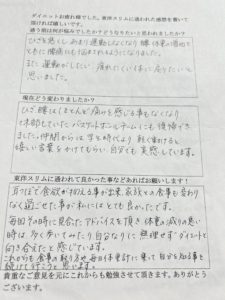 ダイエットお疲れ様でした。東洋スリムに通われた感想を書いて
頂ければ嬉しいです。
通う前は何が悩みでしたか?どうなりたいと思われましたか?
ひざを悪くし、あまり運動しなくなり 腰 体重の増加で
ともに腰痛にも悩まされるようになりました。
また 運動がしたい 疲れにくい体に戻りたいと
思いました。
現在どう変わりましたか?
ひざ、腰はほとんど痛みを感じる事もなくなり
1年間していたバスケットボールチームにも復帰でき
ました。仲間からは 学生時代より 軽く動けると
嬉しい言葉をかけてもらい、自分でも実感しています。
東洋スリムに通われて良かった事などあればお願いします!
耳つぼで食欲が抑える事が出来、家族との食事も変わり
なく過ごせた事が 私にはとても良かったです。
毎回その時に見合たアドバイスを頂き 体重の減りの悪い
時は 多く歩いてみたり自分なりに無理せずダイエットと
向き合えたと感じています。
これからも食事の取り方や毎日体重計に乗って自分を知る事を
続けて行こうと思います。
貴重なご意見を元にこれからも勉強させて頂きます。ありがとう
ございます。